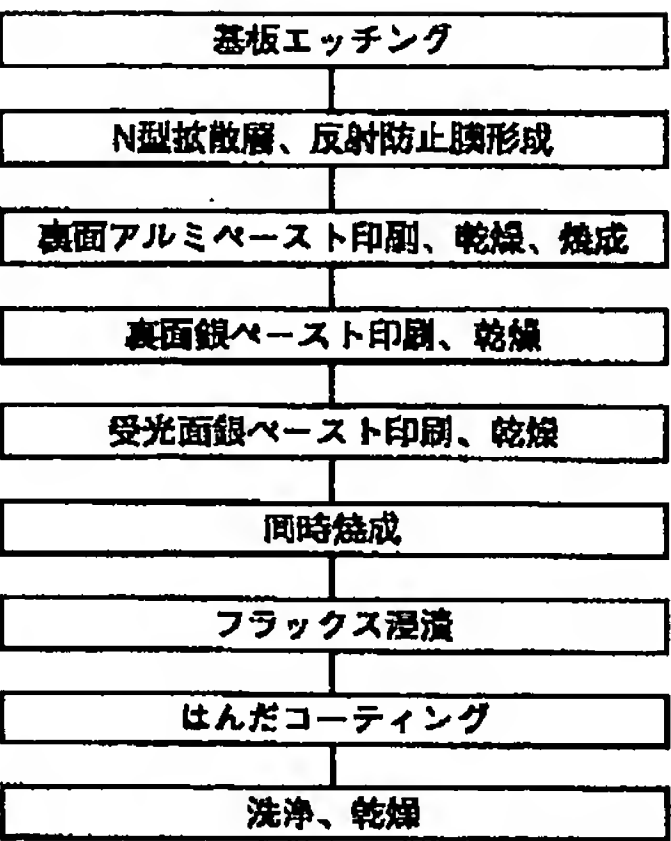 基板エッチング
N型拡散層、反射防止膜形成
裏面アルミペースト印刷、乾燥、焼成
裏面銀ペースト印刷、乾燥
受光面銀ペースト印刷、乾燥
同時焼成
フラックス浸漬
はんだコーティング
洗浄、乾燥